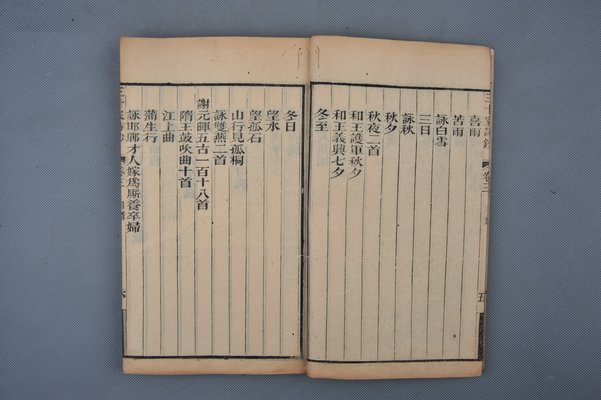 喜雨
苦雨
詠白雪
三日
詠秋
秋夕
秋夜二首
和王護軍秋夕
和王義興七夕
冬至
冬日
望水
望孤石
山行見孤桐
詠雙燕二首
謝元暉五古一百十八首
隋王鼓吹曲十首
江上曲
蒲生行
詠邯鄲才人嫁爲厮養卒婦